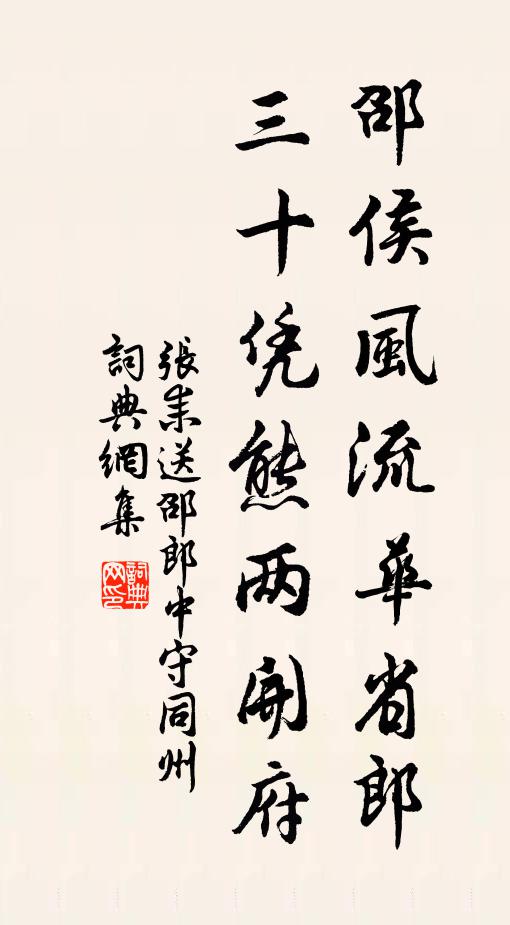 邵侯風流華省郎
三十凭熊两開府
張耒送邵郎中守同州
詞典網集
詞典网印